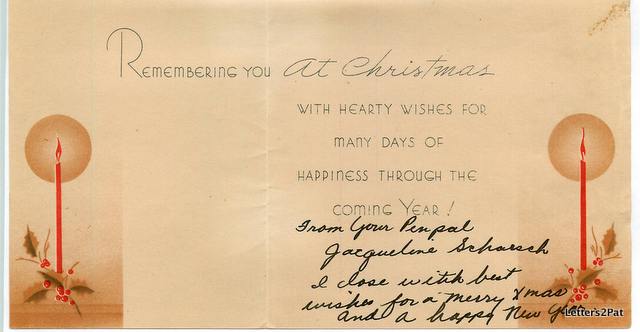 Remembering you At Christmas
with hearty wishes for
many days of
happiness through the
coming Year!
From Your Penpal
Jacqueline Scharsch
I close with best
wishes for a merry Xmas
and a happy New Year
Letters2Pat